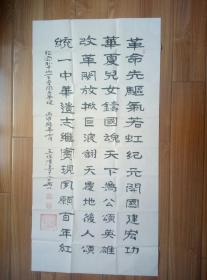 革命先驅氣若虹紀元開國建宏功
華夏兒女鑄國魂天下為公頌英雄
改革開放掀巨波翻天覆地後人頌
統一中華遺志繼實現夙願百年紅